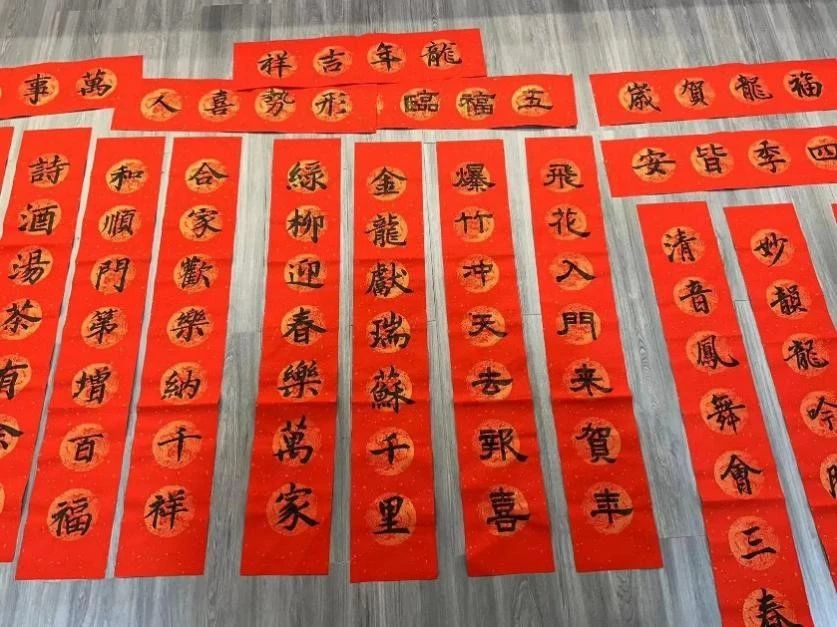 龍年吉祥
萬事
形勢喜人
五福臨
福龍賀歲
四季皆安
妙韻龍吟
清音鳳舞會三春
飛花入門来賀年
爆竹冲天去報喜
金龍獻瑞蘇千里
綠柳迎春樂萬家
合家歡樂納千祥
和順門第增百福
詩酒湯茶有